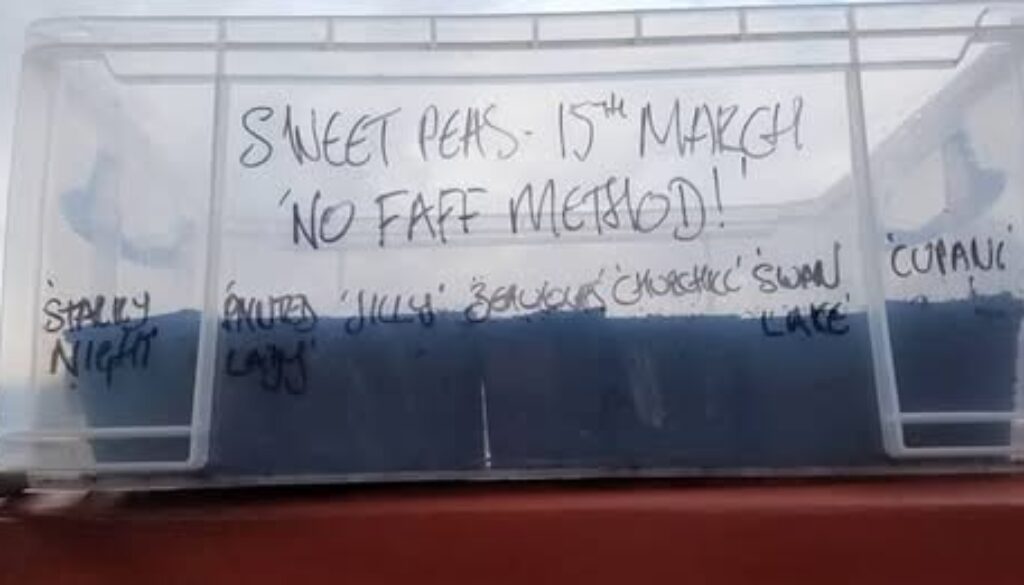 SWEET PEAS - 15TH MARCH
'NO FAFF METHOD!'
'STARRY NIGHT'
'PAINTED LADY'
'JILLY'
'CHURCHILL'
'SWAN LAKE'
'CUPANI'